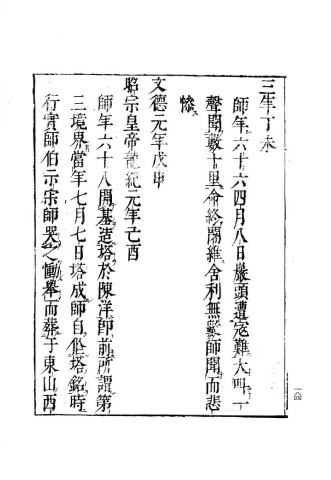 三年丁未
師年六十六四月八日巖頭遭寇難大叫一
聲聞數十里命終闍維舍利無數師聞而悲
慘
文德元年戊申
昭宗皇帝龍紀元年己酉
師年六十八開基造塔於陳洋師前所謂第
三境界當年七月七日塔成師自作塔銘時
行實師伯示宗師哭之慟舉而葬于東山西